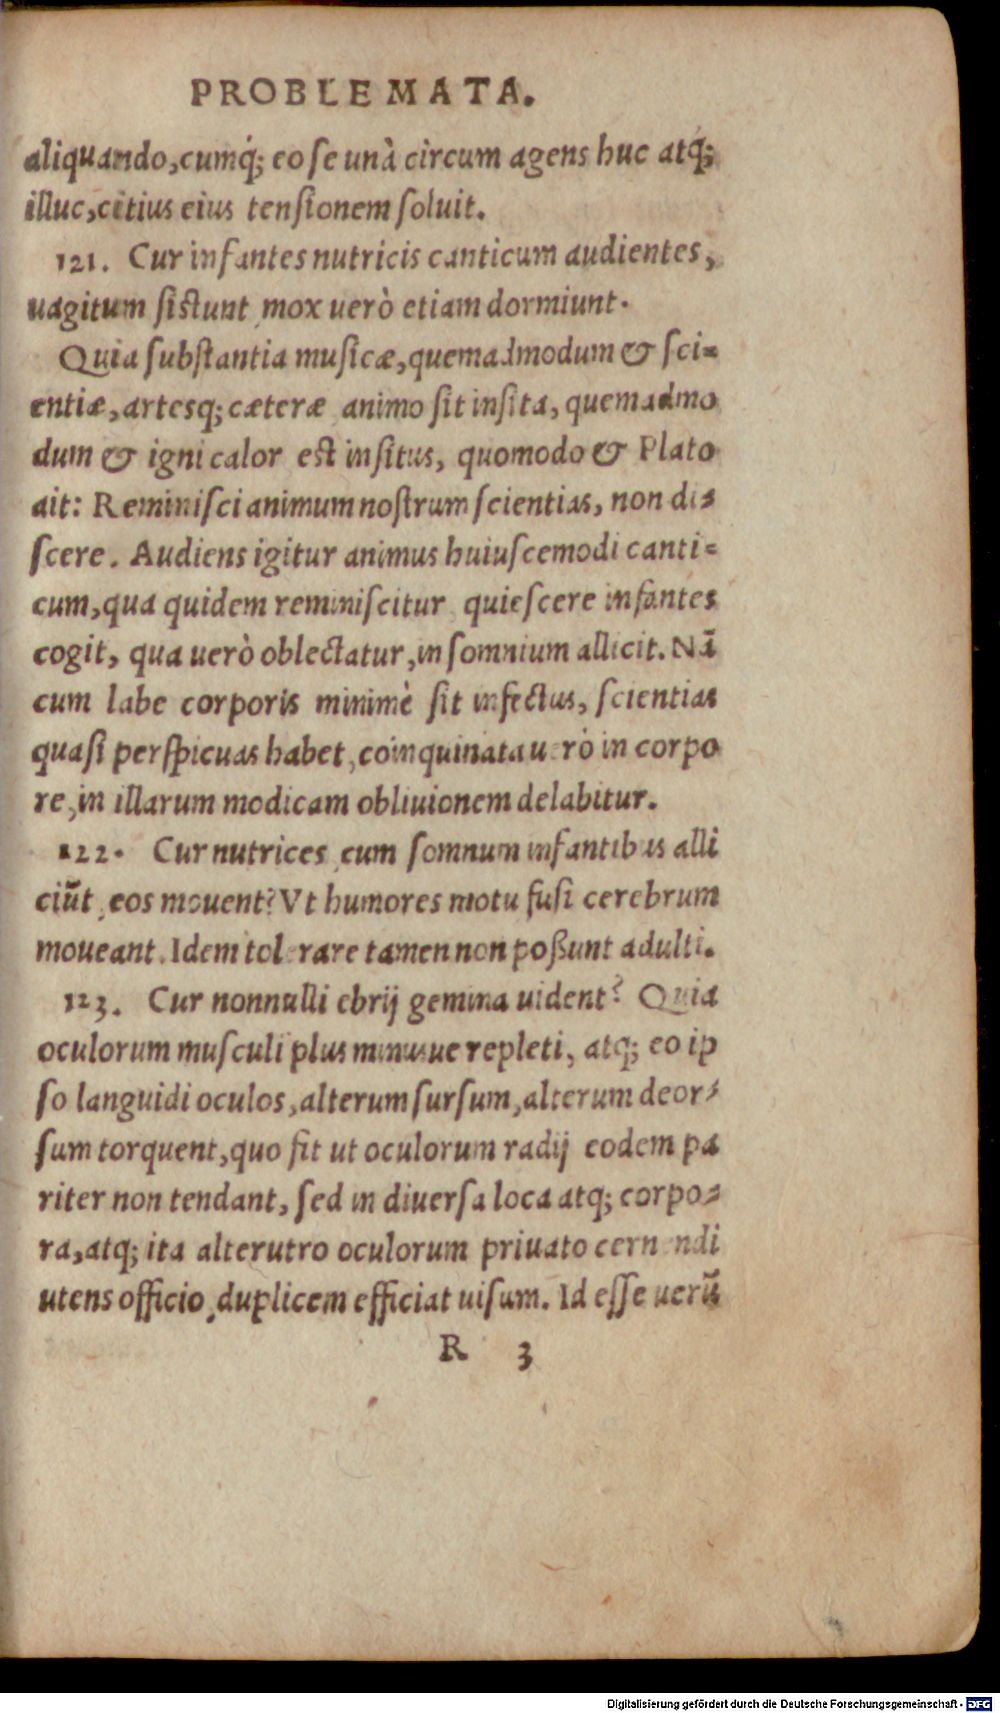 PROBLEMATA.
aliquando, cumq́; eo se unà circum agens huc atq́;
illuc, citius eius tensionem soluit.
121. Cur infantes nutricis canticum audientes,
uagitum sistunt mox uerò etiam dormiunt.
Quia substantia musicæ, quemadmodum & sci=
entiæ, artesq; cæteræ animo sit insita, quemadmo
dum & igni calor est insitus, quomodo & Plato
ait: Reminisci animum nostrum scientias, non di=
scere. Audiens igitur animus huiuscemodi canti=
cum, qua quidem reminiscitur quiescere infantes
cogit, qua uerò oblectatur, in somnium allicit. Nā
cum labe corporis minimè sit infectus, scientias
quasi perspicuas habet, coinquinata uerò in corpo
re, in illarum modicam obliuionem delabitur.
122. Cur nutrices cum somnum infantibus alli
ciūt, eos mouent? Vt humores motu fusi cerebrum
moueant. Idem tolerare tamen non poßunt adulti.
123. Cur nonnulli ebrij gemina uident? Quia
oculorum musculi plus minusue repleti, atq; eo ip
so languidi oculos, alterum sursum, alterum deor=
sum torquent, quo fit ut oculorum radij eodem pa
riter non tendant, sed in diuersa loca atq; corpo=
ra, atq; ita alterutro oculorum priuato cernendi
utens officio, duplicem efficiat uisum. Id esse uerū
R 3
Digitalisierung gefördert durch die Deutsche Forschungsgemeinschaft - DFG